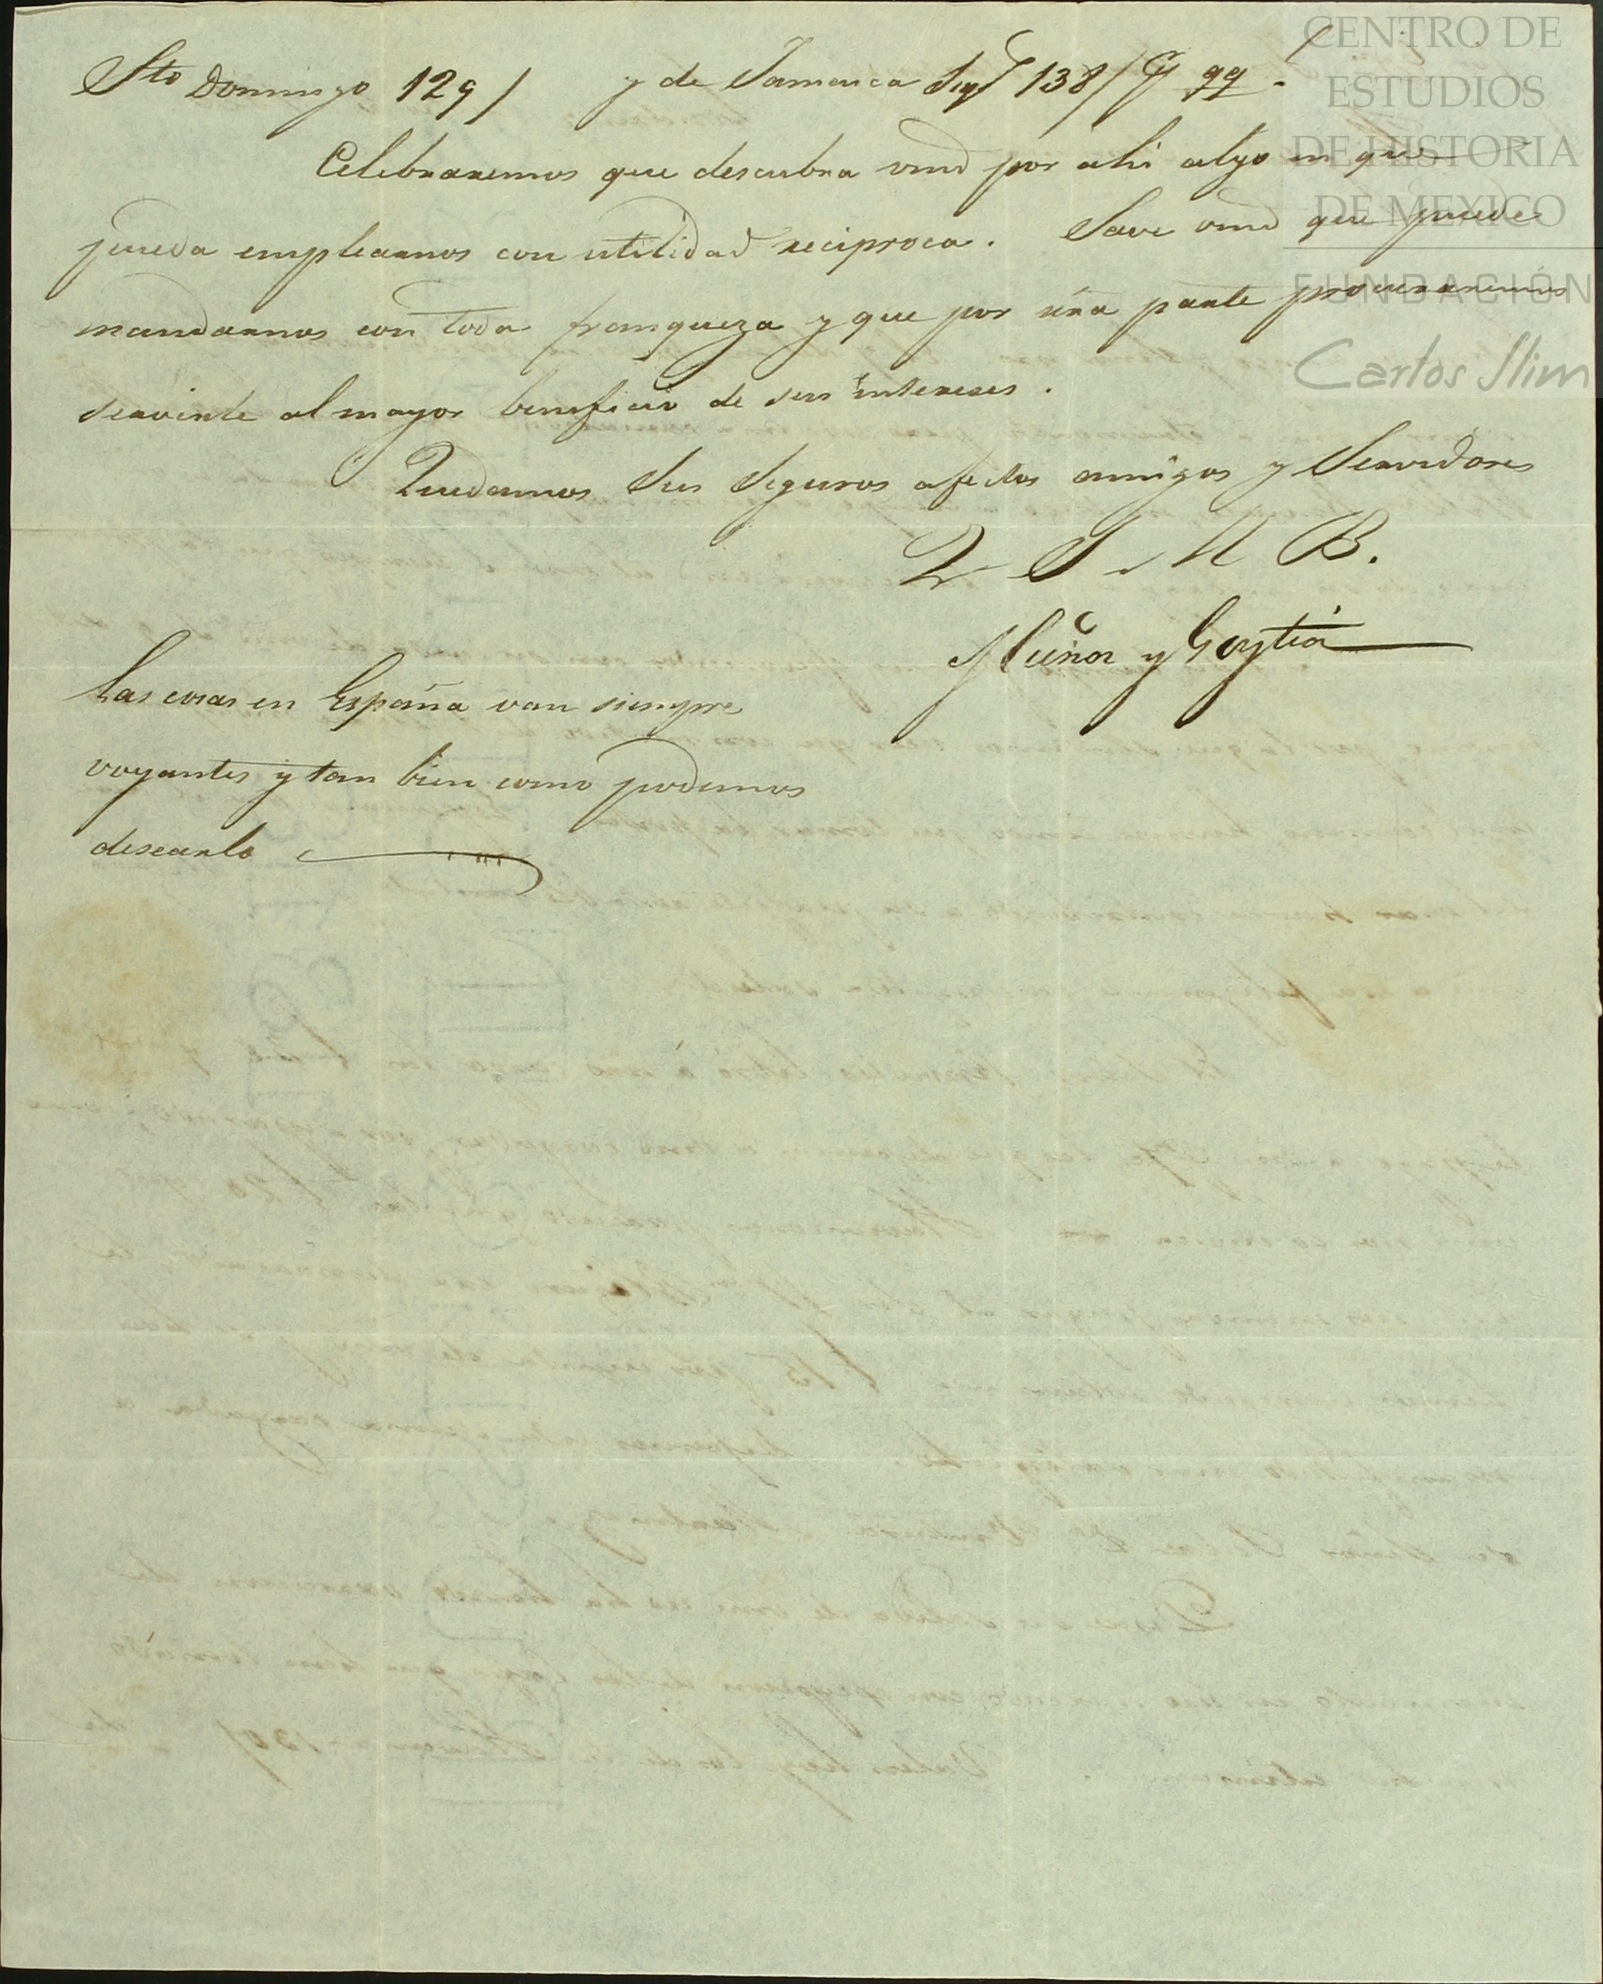 Sto Domingo 129/ y de Jamaica 138/ 99.
Celebraremos que descubra vmd por ahi algo en que
pueda emplearnos con utilidad reciproca. Save vmd que puede
mandarnos con toda franqueza y que por nra parte procuraremos
servirle al mayor beneficio de sus intereses.
Quedamos Sus Seguros afectos amigos y Servidores
Q S M B.
Muñoz y Goytia
Las cosas en España van siempre
voyantes y tan bien como podemos
desearlo
CENTRO DE
ESTUDIOS
DE HISTORIA
DE MEXICO
FUNDACIÓN
Carlos Slim